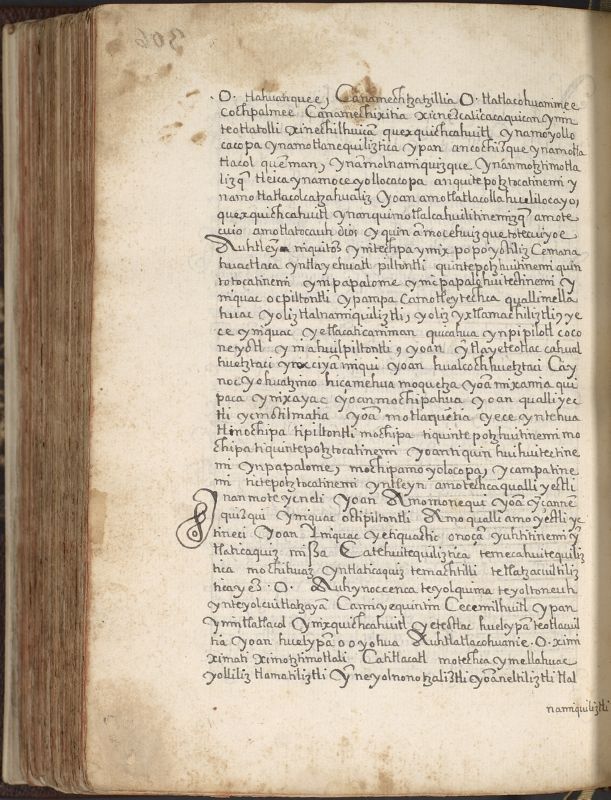 O. tlahuanquee, Canamechtzatzillia O. tlatlacohuanimee
Cochpalmee Canamechixitia xinechcalicacaquican ynin
teotlatolli xinechilhuica quexquichcahuitl ynamoyollo
cacopa ynamotlanequiliztica ypan ancochizque ynamotla
tlacol quenman, ynamolnamiquizque ynanmotzimotla
lizq tleica ynamoceyollocacopa anquitepotztocatinemi y
namotlatlacolcatzahualiz yoan amotlatlacollahuelilocayo,
quexquichcahuitl ynanquimotlalcahuilitinemizq amote
cuio amotlatocauh dios yquin amocehuizque totecuiyoe
Auhtleyn niquitos ynitechpa ymixpopoyotiliz Cemana
huactlaca yntlayehuatl piltontli quintepotzhuitinemi quin
totocatinemi ynpapalome ynipapalohuitectinemi y
niquac ocpiltontli ypampa Camotleytechca quallimella
huac yoliztlalnamiquiliztli, yoliz yxtlamachiliztli, ye
ce yniquac yetlacaticaniman quicahua ynpipilotl coco
neyotl ynahuilpiltontli, yoan
huetztaci miqui yoan hualcochhuetztaci Cay
noc yohuatzinco hicamehua moquetza yoa mixamia qui
paca ynixayac yoanmochipahua yoan qualli yec
tli ycmotilmatia yoa motlaquetia yece yntehua
tlinochipa tipiltontli mochipa tiquintepotzhuitinemi mo
chipa tiquintepotztocatinemi yoantiquin huihuitectine
mi ynpapalome, mochipamoyolocopa, ycampatine
mi titepotztocatinemi yntleyn amotechcaqualli yectli
nanmoteycneli yoan Amomonequi yoa
quisqui yniquac octipiltontli Amoqualli amo yectli yc
tineci yoan Iniquac yetiquactic onoca yuhtitinemi y
tlaticaquiz missa Catehuitequiliztica temecahuitequiliz
tica mochihuaz yntlaticaquiz temachtilli tetlatzacuiltiliz
ticayez. O. Auhynoccenca teyolquima teyoltoneuh
ynteyolcuitlatzayan Camiyequintin Cecemilhuitl ypan
ynintlatlacol ynixquichcahuitl yetestlac huelypa teotlacuil
tia yoan huelypa ooyohua Auhtlatlacohuanie. O. ximi
ximati ximotzimotlali Catitlacatl motechca ymellahuac
yolliliz tlamatiliztli yneyolnonotzaliztli yoaneltiliztli tlal
namiquiliztli